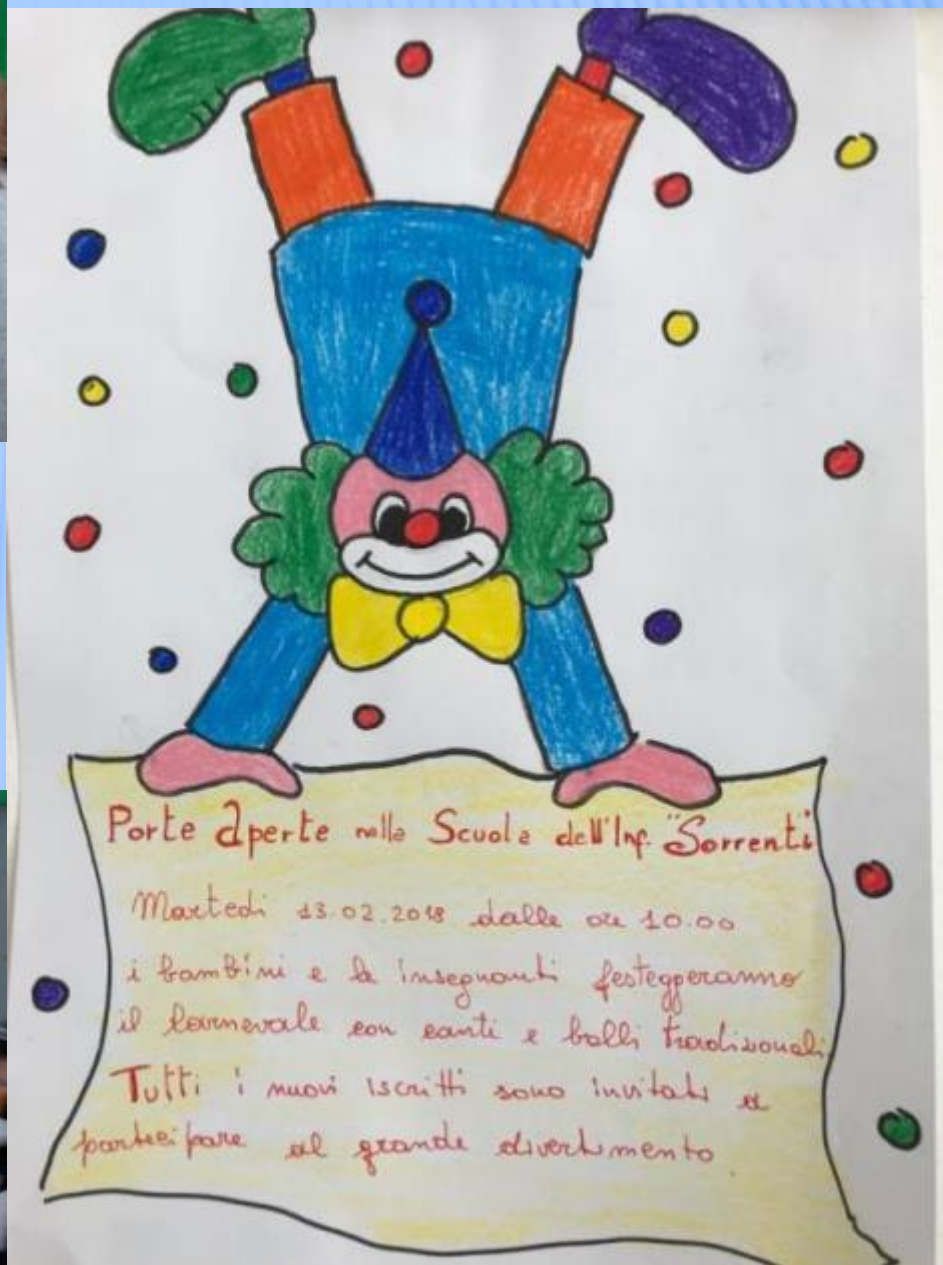 Porte aperte nella Scuola dell'Inf. "Sorrenti
Martedì 13.02.2018 dalle ore 10.00
i bambini e le insegnanti festeggeranno
il Carnevale con canti e balli tradizionali
Tutti i nuovi iscritti sono invitati a
partecipare al grande divertimento